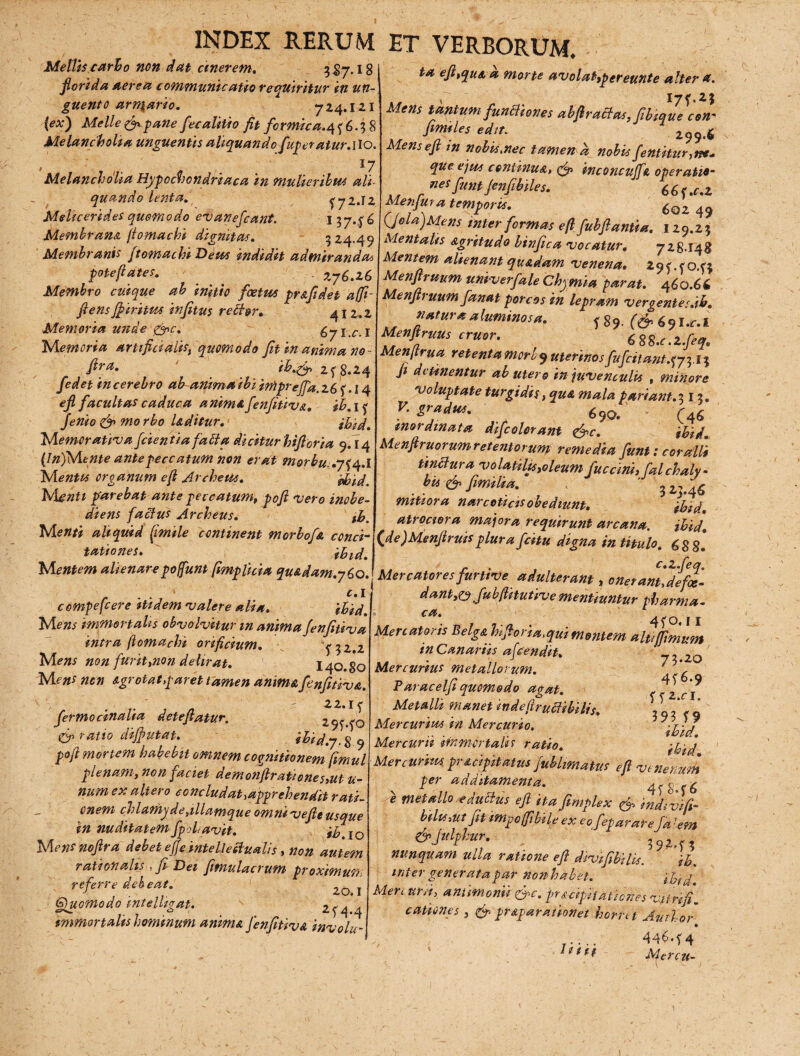 INDEX RERUM ET VERBORUM.
Mellis carbo non dat cinerem. 387.18
florida aerea communicatio requiritur in un-
guento armario. 724.121
(ex) Melle & pane fecalitio fit formica. 456.38
Melancholia unguentis aliquando superatur. 110.
17
Melancholia Hypochondriaca in mulieribus ali-
quando lenta. 572.12
Melicerides quomodo evanescant. 137.56
Membrana stomachi dignitas. 324.49
Membranis stomachi Deus indidit admirandas
potestates. 276.26
Membro cuique ab initio foetus praesidet assi-
stens spiritus insitus rector. 412.2
Memoria unde &c. 671.c.1
Memoria artificialis, quomodo fit in anima no-
stra. ib. & 258.24
sedet in cerebro ab anima ibi impressa. 265.14
est facultas caduca animae sensitivae. ib. 15
senio & morbo laeditur. ibid.
Memorativa scientia facta dicitur historia 9.14
(In) Mente ante peccatum non erat morbu. 754.1
Mentis organum est Archeus. ibid.
Menti parebat ante peccatum, post vero inobe-
diens factus Archeus. ib.
Menti aliquid simile continent morbosae conci-
tationes. ibid.
Mentem alienare possunt simplicia quaedam. 760.
c.1
compescere itidem valere alia. ibid.
Mens immortalis obvolvitur in anima sensitiva
intra stomachi orificium. 532.2
Mens non furit, non delirat. 140.80
Mens non aegrotat, paret tamen animae sensitivae.
22.15
sermocinalia detestatur. 295.50
& ratio disputat. ibid. 7.89
post mortem habebit omnem cognitionem simul
plenam, non faciet demonstrationes, ut u-
num ex altero concludat, apprehendit rati-
onem chlamyde, illamque omni veste usque
in nuditatem spoliavit. ib. 10
Mens nostra debet esse intellectualis, non autem
rationalis, si Dei simulacrum proximum
referre debeat. 20.1
Quomodo intelligat. 254.4
immortalis hominum animae sensitivae involu-
ta est, qua à morte avolat, pereunte altera.
175.23
Mens tantum functiones abstractas, sibique con-
similes edit. 299.6
Mens est in nobis, nec tamen à nobis sentitur, me-
que ejus continua, & inconcussae operatio-
nes sunt sensibiles. 665.c.2
Mensura temporis. 602 49
(Sola) Mens inter formas est substantia. 129.23
Mentalis aegritudo binsica vocatur. 728.148
Mentem alienant quaedam venena. 295.50.53
Menstruum universale Chymia parat. 460.66
Menstruum sanat porcos in lepram vergentes. ib.
natura aluminosa. 589. (& 691.c.1
Menstruus cruor. 688.c.2. seq.
Menstrua retenta morbos uterinos suscitant. 573.13
si detinentur ab utero in juvenculis, minore
voluptate turgidis, quae mala pariant. 313.
V. gradus. 690. (46
inordinata discolorant &c. ibid.
Menstruorum retentorum remedia sunt: coralli
tinctura volatilis, oleum succini, sal chaly-
bis & similia. 323.46
mitiora narcoticis obediunt. ibid.
atrociora majora requirunt arcana. ibid.
(de) Menstruis plura scitu digna in titulo. 688.
c.2. seq.
Mercatores furtive adulterant, onerant, defoe-
dant, & substitutive mentiuntur pharma-
ca. 450.11
Mercatoris Belgae historia, qui montem altissimum
in Canariis ascendit. 73.20
Mercurius metallorum. 456.9
Paracelsi quomodo agat. 552.c1.
Metalli manet indestructibilis. 393 59
Mercurius in Mercurio. ibid.
Mercurii immortalis ratio. ibid.
Mercurius praecipitatus sublimatus est venenum
per additamenta. 458.56
è metallo eductus est ita simplex & indivisi-
bilis, ut sit impossibile ex eo separare salem
& sulphur. 392.53
nunquam ulla ratione est divisibilis. ib.
inter generata par non habet. ibid.
Mercurii, antimonii &c. praecipitationes vitrifi-
cationes, & praeparationes horret Author.
446.54
Iiiii Mercu-